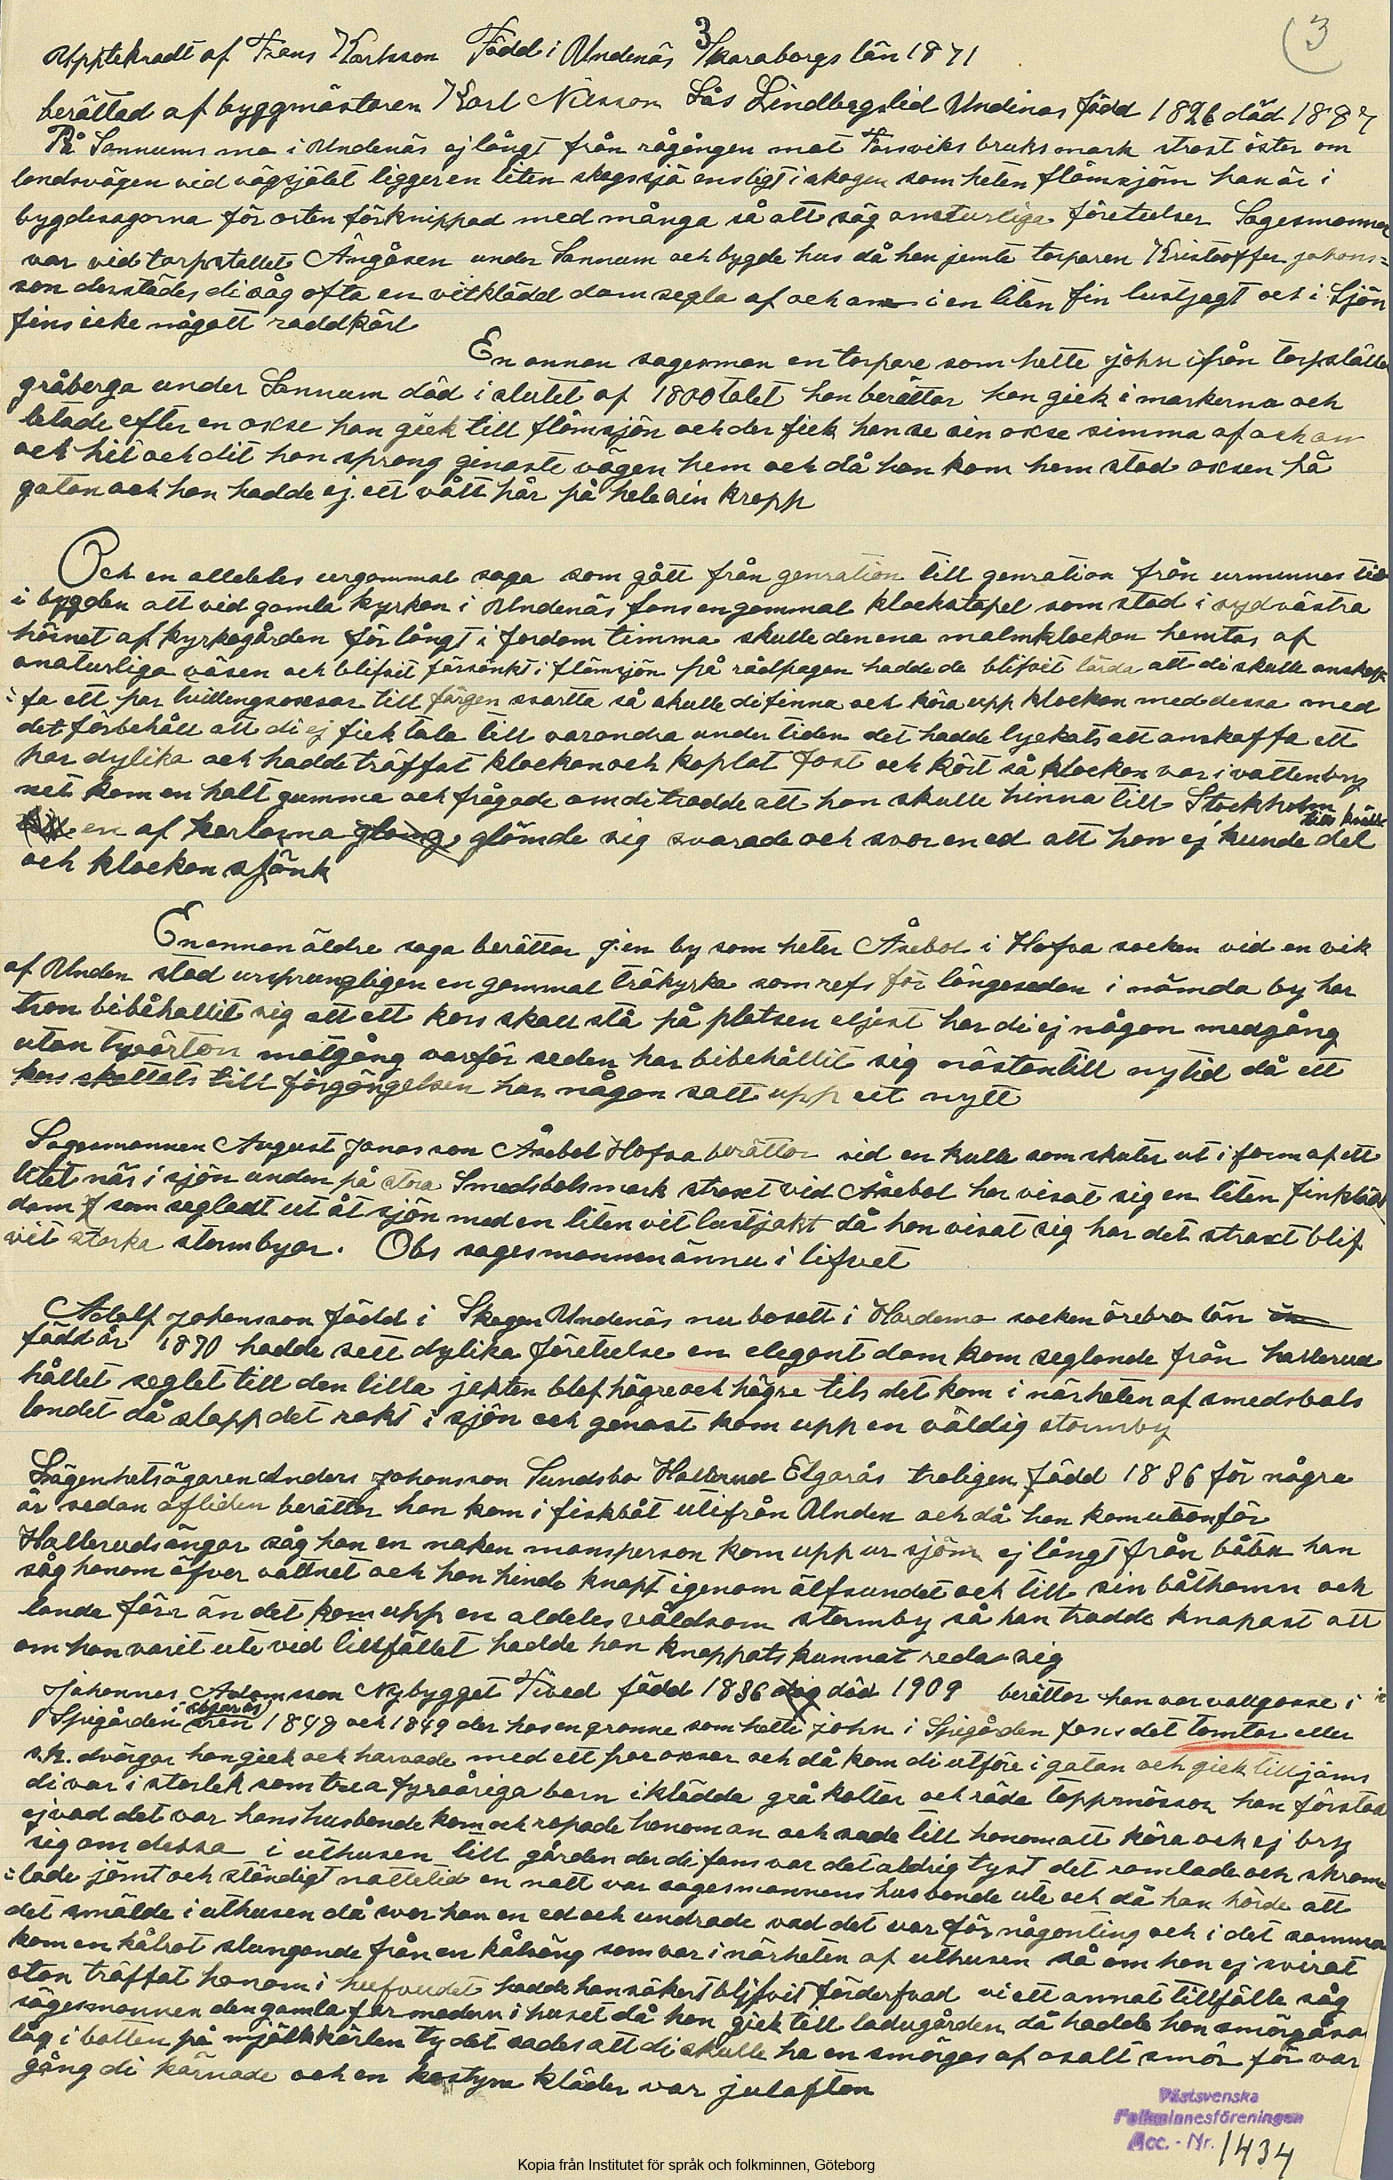 3
(3
Uppteknadt af Frans Karlsson Född i Undenäs Skaraborgs län 1871
berättad af byggmästaren Karl Nilsson Lås Lindbygslid Undenäs född 1826 död 1887
På Sannums ma i Undenäs ej långt från rågången mot Forsviks bruksmark strast öster om
landsvägen vid vägsjälet ligger en liten skogssjö ensligt i skogen som heten flämsjön han är i
bygdesagorna för orten förknippad med många så att säg onaturliga företeelser Sagesmannen
var vid torpstellet Ängåsen under Sannum och bygde hus då han jemte torparen Kristooffer johans=
son derstädes di såg ofta en vitklädd dam segla af och an i en liten fin lustjagt och i Sjön
fins icke någott roddkärl
En annan sagesman en torpare som hette john ifrån torpstället
gråberga under Sannum död i slutet af 1800talet han berättar han gick i markerna och
letade efter en oxse han gick till flämsjön och der fick han se sin oxse simma af och an
och hit och dit han sprang ginaste vägen hem och då han kom hem stod oxsen på
gatan och han hadde ej ett vått hår på hela sin kropp
Och en alldeles urgammal saga som gått från genration till genration från urminnes tid
i bygden att vid gamla kyrkan i Undenäs fans en gammal klockstapel som stod i sydvästra
hörnet af kyrkogården för långt i fordom timma skulle den ena malmklockan hemtas af
onaturliga väsen och blifvit försänkt i flämsjön på rådfrågan hadde de blifvit lärda att di skulle anskaf=
=fa ett par tvillingsoxsar till färgen svartta så skulle di finna och köra upp klockan med dessa med
det förbehåll att di ej fick tala till varandra under tiden det hadde lyckats att anskaffa ett
par dylika och hadde träffat klockan och koplat fast och kört så klockan var i vattenbry
net kom en halt gumma och frågade om de trodde att hon skulle hinna till Stockholm
till kväll
en af karlarna glömde sig svarade och svor en ed att hon ej kunde det
och klockan sjönk
En annan äldre saga berättar j en by som heter Åsebol i Hofva socken vid en vik
af Unden stod ursprungligen en gammal träkyrka som refs för längesedan i nämda by har
tron bibehållit sig att ett kors skall stå på platsen eljest har di ej någon medgång
utan tvärtom motgång varför seden har bibehållit sig nästantill nytid då ett
kors skattats till förgängelsen har någon satt upp ett nytt
Sagesmannen August Jonasson Åsebol Hofva berättar vid en kulle som skuter ut i form af ett
litet näs i sjön unden på stora Smedsbolsmark straxt vid Åsebol har visat sig en liten finklädd
dam som segladt ut åt sjön med en liten vit lustjakt då hon visat sig har det straxt blif
vit starka stormbyar. Obs sagesmannen ännu i lifvet
Adolf Johansson född i Skagen Undenäs nu bosatt i Hardemo socken örebro län
född år 1870 hadde sett dylika företeelse en elegant dam kom seglande från hallerud
hållet seglet till den lilla jakten blef högre och högre tils det kom i närheten af smedsbols
landet då slapp det rakt i sjön och genast kom upp en väldig stormby
Lägenhetsägaren Anders Johansson Sundsbo Hallerud Elgarås troligen född 1886 för några
år sedan afliden berättar han kom i fiskbåt utifrån Unden och då han kom utanför
Hallerudsängar såg han en naken mansperson kom upp ur sjön ej långt från båten han
såg honom öfver vattnet och han hinde knapt igenom älfsundet och till sin båthamn och
landa förr än det kom upp en aldeles våldsom stormby så han trodde knapast att
om han varit ute vid tillfället hadde han knappats kunnat reda sig
Johannes Adamsson Nybygget Tived född 1836 död 1909 berättar han var vallgosse i
Spigården 1848 och 1849 der hos en granne som hette john i Spigården fans det tomtar eller
s.k. dvärgar han gick och harvade med ett par oxsar och då kom di utföre i gatan och gick till jäms
di var i storlek som trea fyraåriga barn iklädda grå koltar och röda toppmössor han förstod
ej vad det var hans husbonde kom och ropade honom an och sade till honom att köra och ej bry
sig om dessa i uthusen till gården der di fans var det aldrig tyst det ramlade och skram=
=lade jämt och ständigt nattetid en natt var sagesmannens husbonde ute och då han hörde att
det smälde i uthusen då svor han en ed och undrade vad det var för någonting och i det samma
kom en kålrot slungande från en kålsäng som var i närheten af uthusen så om han ej svirat
utan träffat honom i hufvudet hadde han säkert blifvit förderfvad vi ett annat tillfälle såg
sagesmannen den gamla farmodern i huset då hon gick till ladugården då hadde hon smörgåsa
låg i botten på mjölkkärlen ty det sades att di skulle ha en smörgås af osalt smör för var
gång di kärnade och en kostym kläder var julafton
Västsvenska
Folkminnesföreningen
Acc. - Nr. 1434
Kopia från Institutet för språk och folkminnen, Göteborg